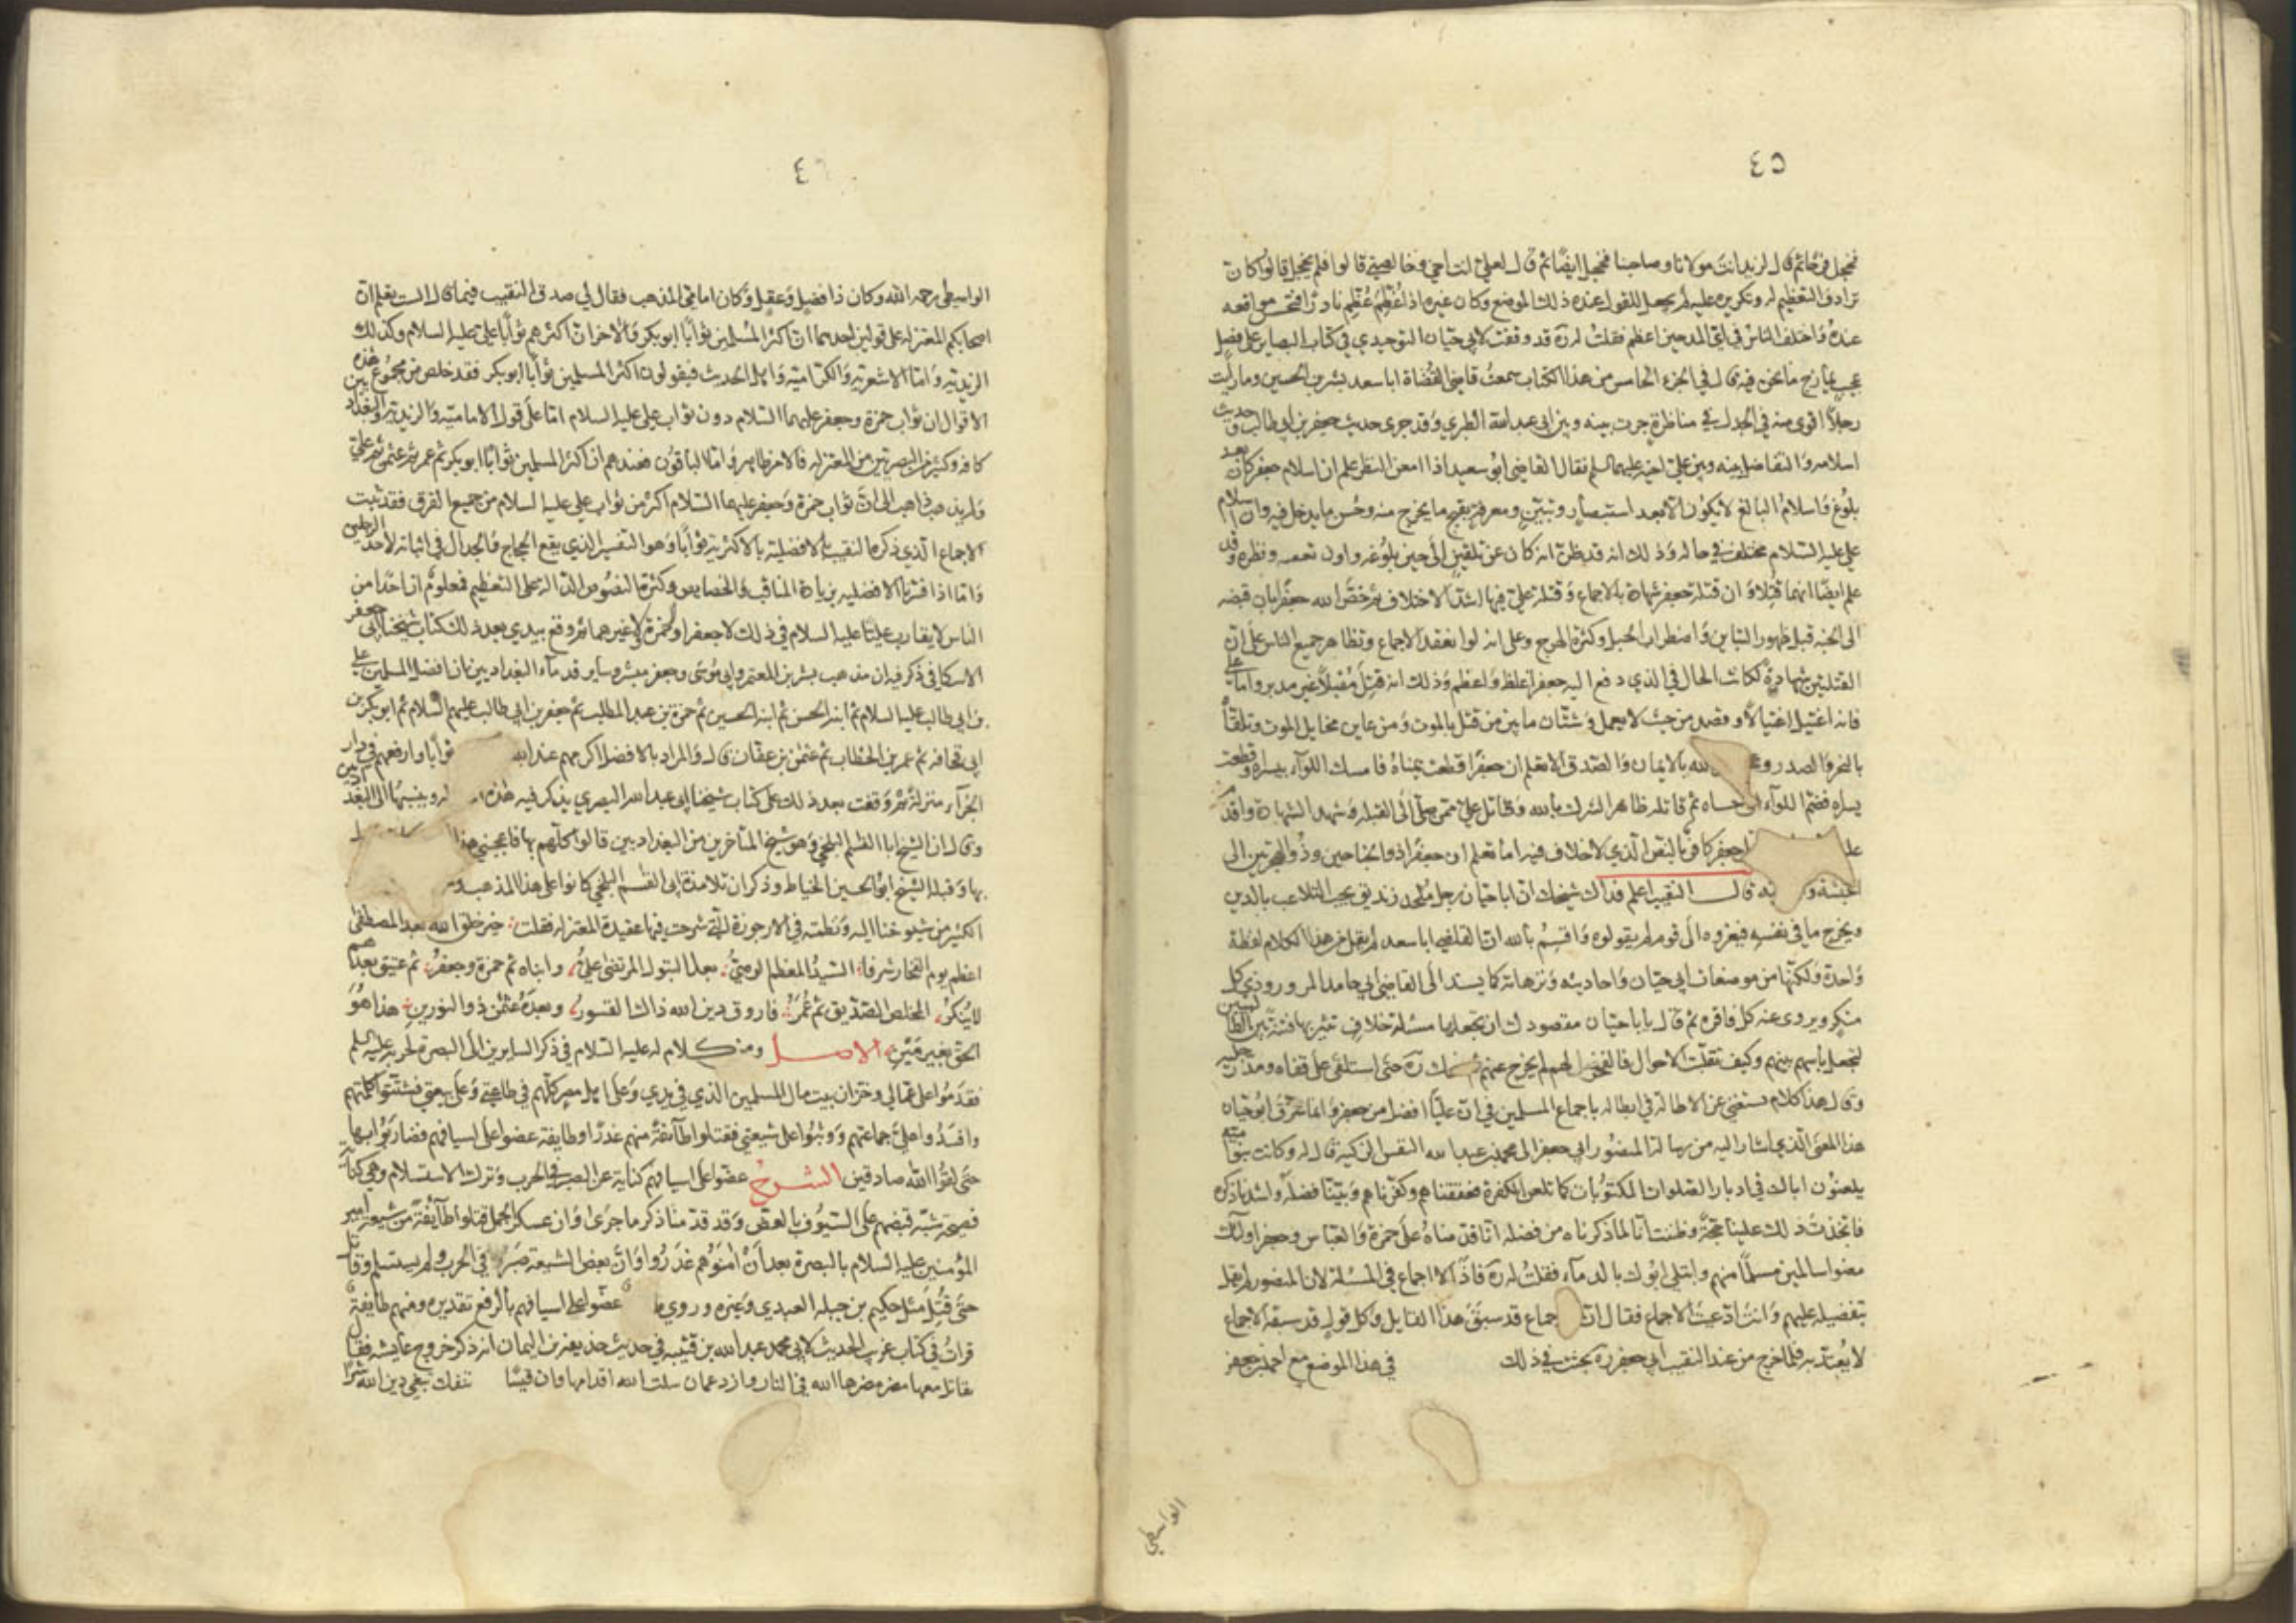 ٤٥
فخجل فرحا ثم قال لزيد انت مولانا وصاحبنا فخجل ايضا ثم قال لعلي انت اخي وخالصتي قالوا فلم يخجل قالوا كان
ترادف التعظيم له وتكريره عليه لم يجعل للقول عنده ذلك الموضع وكان غيره اذا عُظّم عُظّم نادرا فتحسن مواقعه
عنده واختلف الناس في اي المدحين اعظم فقلت له ره قد وقفت لابي حيان التوحيدي في كتاب البصاير على فصل
عجيب يمازج ما نحن فيه قال في الجزء الخامس من هذا الكتاب سمعت قاضي القضاة ابا سعد بشر بن الحسين وما رايت
رجلا اقوى منه في الجدل في مناظرة جرت بينه وبين ابي عبد الله الطبري وقد جرى حديث جعفر بن ابي طالب وحديث
اسلامه والتفاضل بينه وبين علي اخيه عليهما السلم فقال القاضي ابو سعيد اذا امعن النظر علم ان اسلام جعفر كان بعد
بلوغ واسلام البالغ لا يكون الا بعد استبصار وتبين ومعرفة بقبح ما يخرج منه وحسن ما يدخل فيه وان اسلام
علي عليه السلام مختلف في حاله وذلك انه قد يظن انه كان عن تلقين الى حين بلوغه واوان تعقبه ونظره وقد
علم ايضا انهما قتلا وان قتلة جعفر شهادة بالاجماع وقتلة علي فيها اشد الاختلاف ثم خص الله جعفرا بان قبضه
الى الجنة قبل ظهور التباين واضطراب الحبل وكثرة الهرج وعلى انه لو انعقد الاجماع وتظاهر جميع الناس على ان
القتلتين شهادة لكانت الحال في الذي دفع اليه جعفر اغلظ واعظم وذلك انه قتل مقبلا غير مدبر واما علي
فانه اغتيل اغتيالا وقصد من حيث لا يعلم وشتان ما بين من قتل بالموت ومن عاين مخايل الموت وتلقاه
بالنحر والصدر وع الله بالايمان والصدق الا تعلم ان جعفرا قطعت يمناه فامسك اللواء بيسراه وقطعت
يسراه فضم اللواء ثم قاتله ظاهر الشرك بالله وقاتل علي ممن صلى الى القبلة وشهد الشهادة واقدم
جعفر كافر بالنص الذي لا خلاف فيه اما تعلم ان جعفرا ذو الجناحين وذو الهجرتين الى
الحبشة و قال النقيب اعلم فداك شيخك ان ابا حيان رجل ملحد زنديق يحب التلاعب بالدين
ويخرج ما في نفسه فيعزوه الى قوم لم يقولوه واقسم بالله ان القاضي ابا سعد لم يقل من هذا الكلام لفظة
واحدة ولكنها من موضعات ابي حيان واحاديثه وترهاته كما يسند الى القاضي ابي حامد المروروذي كل
منكر ويروي عنه كل فاقرة ثم قال يا ابا حيان مقصودك ان تجعلها مسئلة خلاف تثير بها فتنة بين الطالبيين
لتجعل باسهم بينهم وكيف تقلبت الاحوال فالفخر لهم لم يخرج عنهم ثم ضحك ره حتى استلقى على قفاه ومد رجليه
وقال هذا كلام يستغنى عن الاطالة في ابطاله باجماع المسلمين في ان عليا افضل من جعفر وانما سرق ابو حيان
هذا المعنى الذي اشار اليه من رسالة المنصور ابي جعفر الى محمد بن عبد الله النفس الزكية قال له وكانت بنو امية
يلعنون اباك في ادبار الصلوات المكتوبات كما تلعن الكفرة فعنفناهم وكفرناهم وبينا فضله واشدنا ذكره
فاتخذت ذلك علينا حجة وظننت انا لما ذكرناه من فضله انا قدمناه على حمزة والعباس وجعفر اولئك
مضوا سالمين مسلما منهم وابتلي ابوك بالدماء فقلت له ره فاذا لا اجماع في المسئلة لان المنصور لم يقل
بتفضيله عليهم وانت ادعيت الاجماع فقال ان الاجماع قد سبق هذا القايل وكل قول قد سبقه الاجماع
لا يعتد به فلما خرج من عند النقيب ابي جعفر ره بحثت في ذلك في هذا الموضع مع احمد بن جعفر
الواسطي
٤٦
الواسطي رحمه الله وكان ذا فضل وعقل وكان امامي المذهب فقال لي صدق النقيب فيما قال الست تعلم ان
اصحابكم المعتزلة على قولين احدهما ان اكثر المسلمين ثوابا ابو بكر والاخر ان اكثرهم ثوابا علي عليه السلام وكذلك
الزيدية واما الاشعرية والكرامية واهل الحديث فيقولون اكثر المسلمين ثوابا ابو بكر فقد خلص من مجموع هذه
الاقوال ان ثواب حمزة وجعفر عليهما السلام دون ثواب علي عليه السلام اما على قول الامامية والزيدية والبغداديين
كافة وكثير من البصريين من المعتزلة فالامر ظاهر واما الباقون فعندهم ان اكثر المسلمين ثوابا ابو بكر ثم عمر ثم عثمن ثم علي
ولم يذهب ذاهب الى ان ثواب حمزة وجعفر عليهما السلام اكثر من ثواب علي عليه السلام من جميع الفرق فقد ثبت
الاجماع الذي ذكره النقيب اذا فسرنا الافضلية بالاكثرية ثوابا وهو التفسير الذي يقع الحجاج والجدال في اثباته لاحد الرجلين
واما اذا فسرنا الافضلية بزيادة المناقب والخصايص وكثرة النصوص الدالة على التعظيم فمعلوم ان احدا من
الناس لا يقارب عليا عليه السلام في ذلك لا جعفر ولا حمزة ولا غيرهما ثم وقع بيدي بعد ذلك كتاب شيخنا ابي جعفر
الاسكافي ذكر فيه ان مذهب بشر بن المعتمر وابي موسى وجعفر بن مبشر وساير قدماء البغداديين ان افضل المسلمين علي
بن ابي طالب عليه السلام ثم ابنه الحسن ثم ابنه الحسين ثم حمزة بن عبد المطلب ثم جعفر بن ابي طالب عليهم السلام ثم ابو بكر بن
ابي قحافة ثم عمر بن الخطاب ثم عثمن بن عفان قال والمراد بالافضل اكرمهم عند الله ثوابا وارفعهم في دار
الجزاء منزلة ثم وقفت بعد ذلك على كتاب شيخنا ابي عبد الله البصري يذكر فيه هذه وينسبها الى البغداديين
وقال ان الشيخ ابا القسم البلخي وهو شيخ المتاخرين من البغداديين قالوا كلهم بها فاعجبني هذا
بها وقبله الشيخ ابو الحسين الخياط وذكر ان تلامذة ابي القسم البلخي كانوا على هذا المذهب
الكثير من شيوخنا اليه ونظمته في الارجوزة التي شرحت فيها عقيدة المعتزلة فقلت خير خلق الله بعد المصطفى
اعظم يوم الفخار شرفا السيد المعظم الوصي بعل البتول المرتضى علي وابناه ثم حمزة وجعفر ثم عتيق بعدهم
لا ينكر المخلص الصديق ثم عمر فاروق دين الله ذاك القسور وبعده عثمن ذو النورين هذا هو
الحق بغير مين الاصل ومن كلام له عليه السلام في ذكر السايرين الى البصرة لحربه عليه السلم
فقدموا على عمالي وخزان بيت مال المسلمين الذي في يدي وعلى اهل مصر كلهم في طاعتي وعلى بيعتي فشتتوا كلمتهم
وافسدوا علي جماعتهم ووثبوا على شيعتي فقتلوا طائفة منهم غدرا وطايفة عضوا على اسيافهم فضاربوا بها
حتى لقوا الله صادقين الشرح عضوا على اسيافهم كناية عن الصبر في الحرب وترك الاستسلام وهي كناية
فصيحة شبه قبضهم على السيوف بالعض وقد قدمنا ذكر ما جرى وان عسكر الجمل قتلوا طائفة من شيعة امير
المؤمنين عليه السلام بالبصرة بعد ان امنوهم غدروا وان بعض الشيعة صبر في الحرب ولم يستسلم وقاتل
حتى قتل مثل حكيم بن جبلة العبدي وغيره وروي عضوا على اسيافهم بالرفع تقديره ومنهم طايفة
قرات في كتاب غريب الحديث لابي محمد عبد الله بن قتيبة في حديث حذيفة بن اليمان انه ذكر خروج عايشة فقال
يقاتل معها مضر مضرها الله في النار وازد عمان سلت الله اقدامها وان قيسا تنفك تبغي دين الله شرا